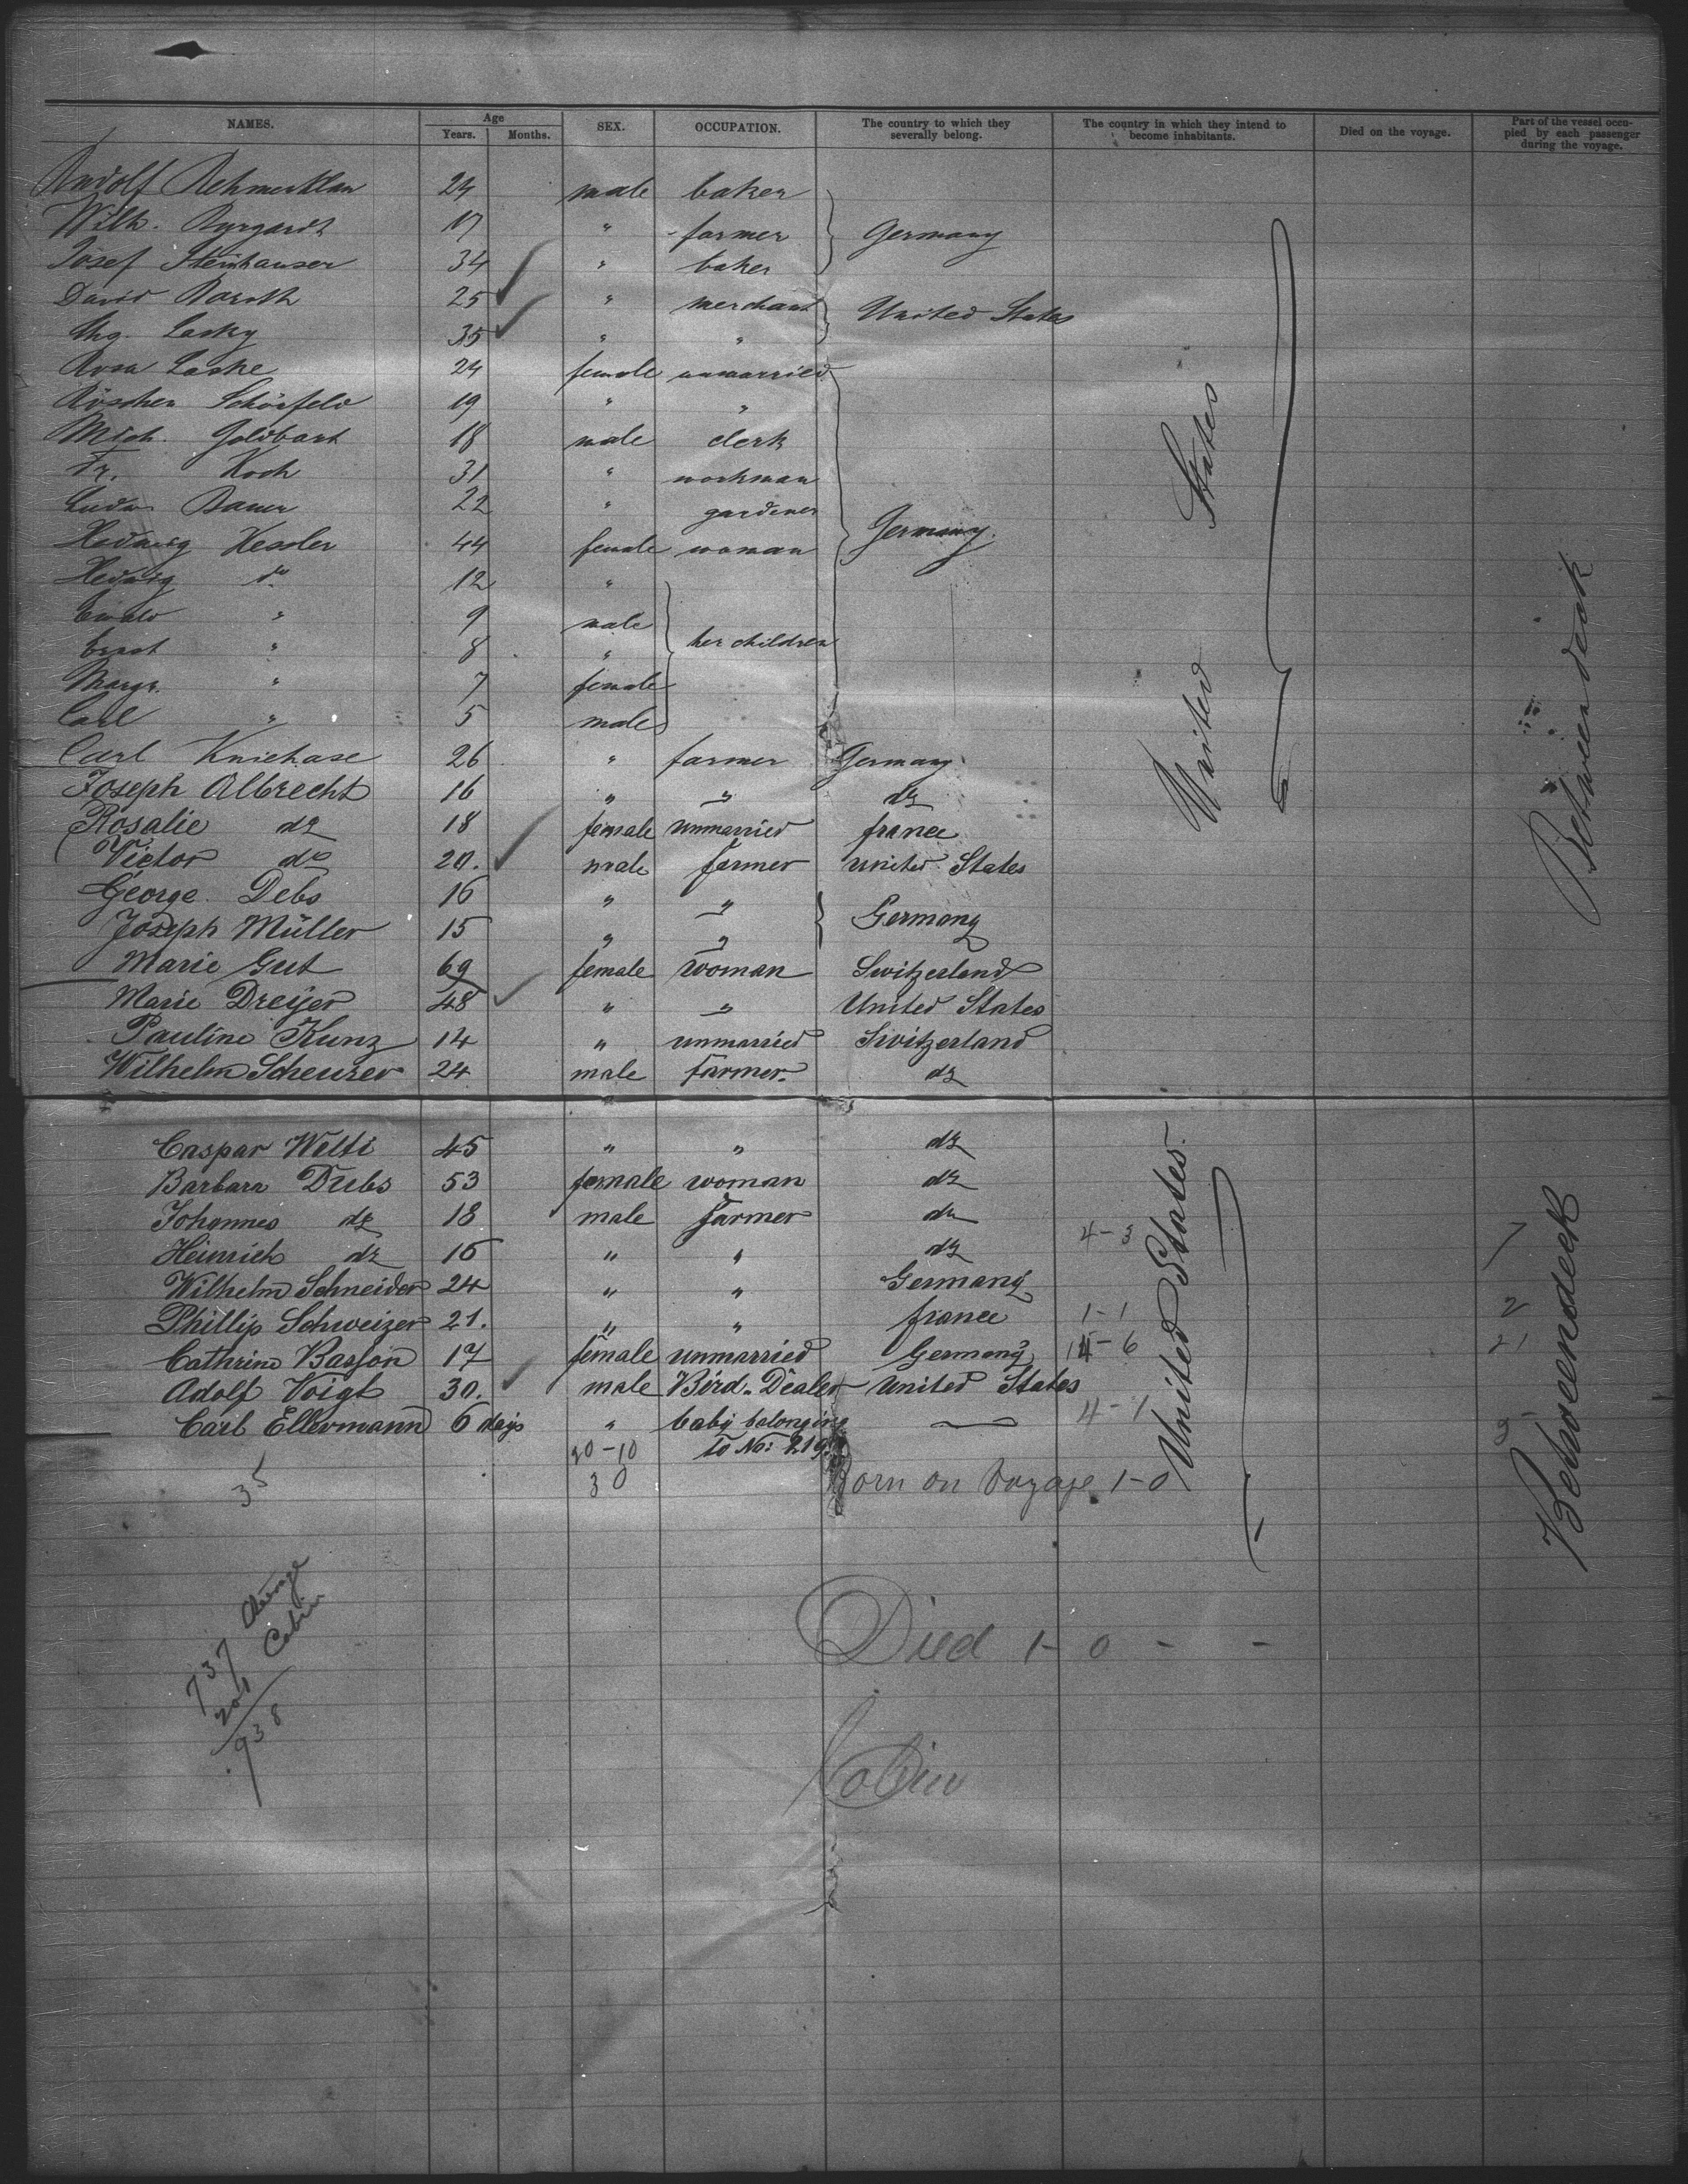 NAMES. Age Years. Months. SEX. OCCUPATION. The country to which they severally belong. The country in which they intend to become inhabitants. Died on the voyage. Part of the vessel occupied by each passenger during the voyage.
Rudolf 24 male baker
Wilh. 17 " farmer Germany
Josef Steinhauser 34 " baker
David 25 " merchant United States
Lasky 35 " "
Rosa Laske 24 female unmarried
Röschen Schönfeld 19 " "
Mich. Goldbart 18 male clerk
Fr. Koch 31 " workman
Ludw. Bauer 22 " gardener
Hedwig Kessler 44 female woman Germany.
Hedwig do 12 "
Ewald " 9 male
Ernst " 8 " her children
Margr. " 7 female
Carl " 5 male
Carl Kniehase 26 " farmer Germany
Joseph Albrecht 16 " " do
Rosalie do 18 female unmarried france
Victor do 20. male farmer united States
George Debs 16 " "
Joseph Müller 15 " " Germany
Marie Gut 69 female woman Switzerland
Marie Dreijer 48 " " United States
Pauline Kunz 14 " unmarried Switzerland
Wilhelm Scheurer 24 male farmer. do
United States
Betweendeck
Caspar Welti 45 " " do
Barbara Dubs 53 female woman do
Johannes do 18 male farmer do
4-3
Heinrich do 16 " " do
Wilhelm Schneider 24 " " Germany
Phillip Schweizer 21. " " france 1-1 2
Cathrine Basson 17 female unmarried Germany 14-6 21
Adolf Voigt 30. male Bird-Dealer United States
4-1
Carl Ellermann 6 days " baby belonging
20-10 to No: 219.
35 30 Born on Voyage 1-0
United States.
Betweendeck
737
201 Cabin
938
Died 1-0 - -
Cabin